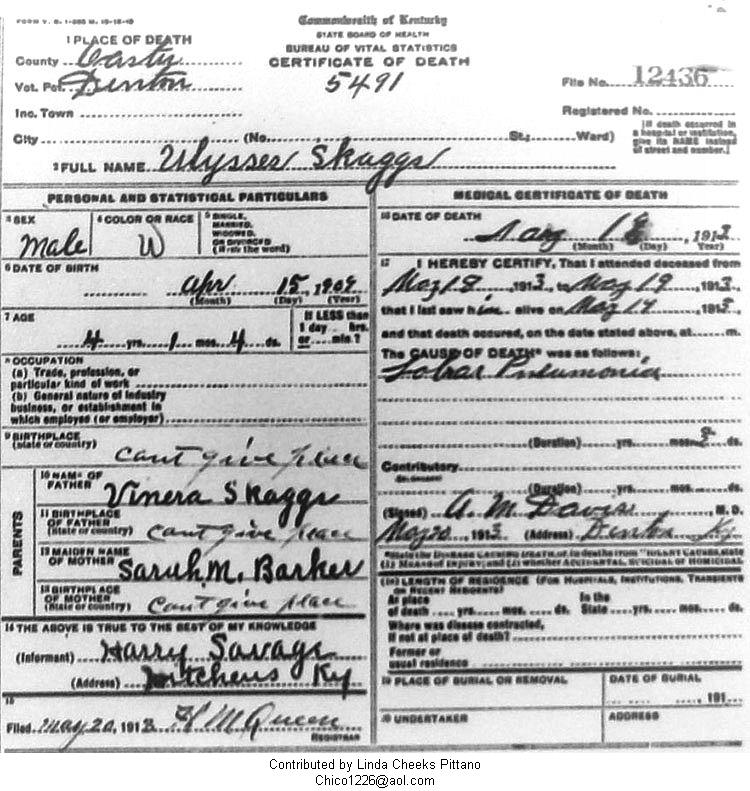 FORM V. S. 1-
Commonwealth of Kentucky
STATE BOARD OF HEALTH
BUREAU OF VITAL STATISTICS
CERTIFICATE OF DEATH
1 PLACE OF DEATH
County
Vot. Pct. Denton
5491
File No. 12436
Inc. Town
Registered No.
City (No. St.; Ward)
[If death occurred in a hospital or institution, give its NAME instead of street and number.]
2 FULL NAME Ulysses Skaggs
PERSONAL AND STATISTICAL PARTICULARS
3 SEX
Male
4 COLOR OR RACE
W
5 SINGLE, MARRIED, WIDOWED, OR DIVORCED (Write the word)
6 DATE OF BIRTH
Apr 15, 1909
(Month) (Day) (Year)
7 AGE
4 yrs. 1 mos. 4 ds.
If LESS than 1 day hrs. or min.?
8 OCCUPATION
(a) Trade, profession, or particular kind of work
(b) General nature of industry business, or establishment in which employed (or employer)
9 BIRTHPLACE
(state or country) cant give place
PARENTS
10 NAME OF FATHER Vinera Skaggs
11 BIRTHPLACE OF FATHER (State or country) cant give place
12 MAIDEN NAME OF MOTHER Sarah. M. Barker
13 BIRTHPLACE OF MOTHER (State or country) cant give place
14 THE ABOVE IS TRUE TO THE BEST OF MY KNOWLEDGE
(Informant) Harry Savage
(Address) Ky
15
Filed May 20, 1913 McQueen
REGISTRAR
MEDICAL CERTIFICATE OF DEATH
16 DATE OF DEATH
, 1913
(Month) (Day) (Year)
17 I HEREBY CERTIFY, That I attended deceased from
May 18, 1913, to May 19, 1913,
that I last saw him alive on May 19, 1913,
and that death occured, on the date stated above, at m.
The CAUSE OF DEATH* was as follows:
Lobar Pneumonia
(Duration) yrs. mos. ds.
Contributory
(Duration) yrs. mos. ds.
(Signed) A. M. Davis, M. D.
May 20, 1913 (Address) Denton Ky
18 LENGTH OF RESIDENCE (FOR HOSPITALS, INSTITUTIONS, TRANSIENTS OR RECENT RESIDENTS)
At place of death yrs. mos. ds. In the State yrs. mos. ds.
Where was disease contracted, if not at place of death?
Former or usual residence
19 PLACE OF BURIAL OR REMOVAL
DATE OF BURIAL
191
20 UNDERTAKER
ADDRESS
Contributed by Linda Cheeks Pittano
Chico1226@aol.com